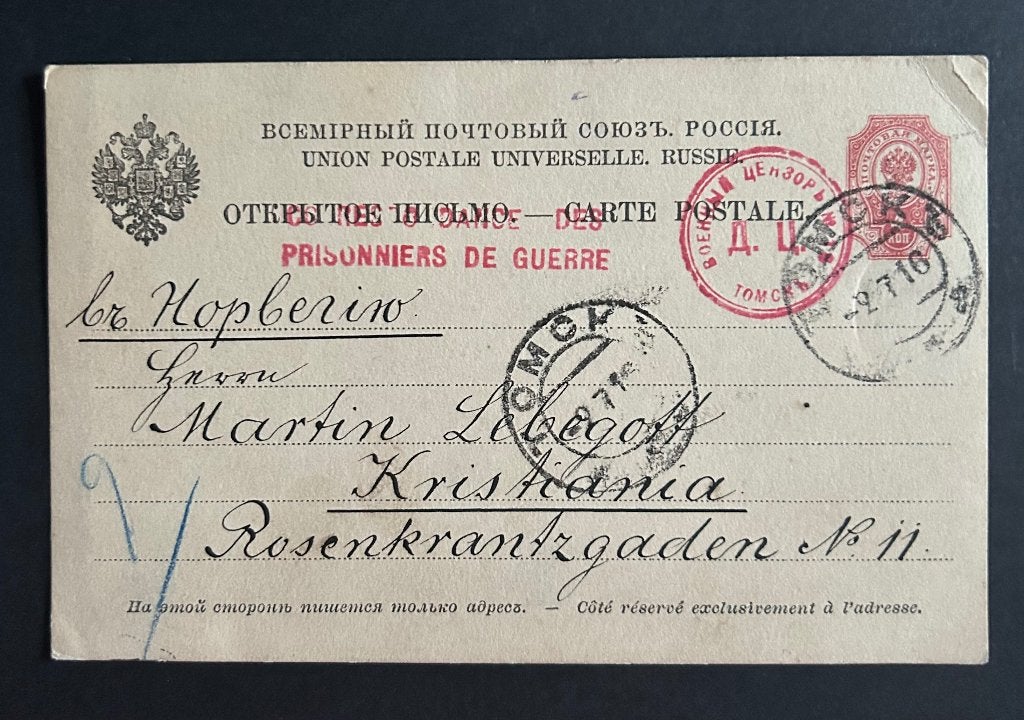 ВСЕМІРНЫЙ ПОЧТОВЫЙ СОЮЗЪ. РОССІЯ.
UNION POSTALE UNIVERSELLE. RUSSIE.
ПОЧТОВАЯ МАРКА
КОП
ВОЕННЫЙ ЦЕНЗОРЪ
Д. Ц.
ТОМСКЪ
ОТКРЫТОЕ ПИСЬМО. — CARTE POSTALE.
DES
PRISONNIERS DE GUERRE
ТОМСКЪ
-2.7.16
въ Норвегію
ТОМСКЪ
Herrn
Martin Lebegott
Kristiania
Rosenkrantzgaden № 11.
На этой сторонѣ пишется только адресъ. — Côté réservé exclusivement à l'adresse.